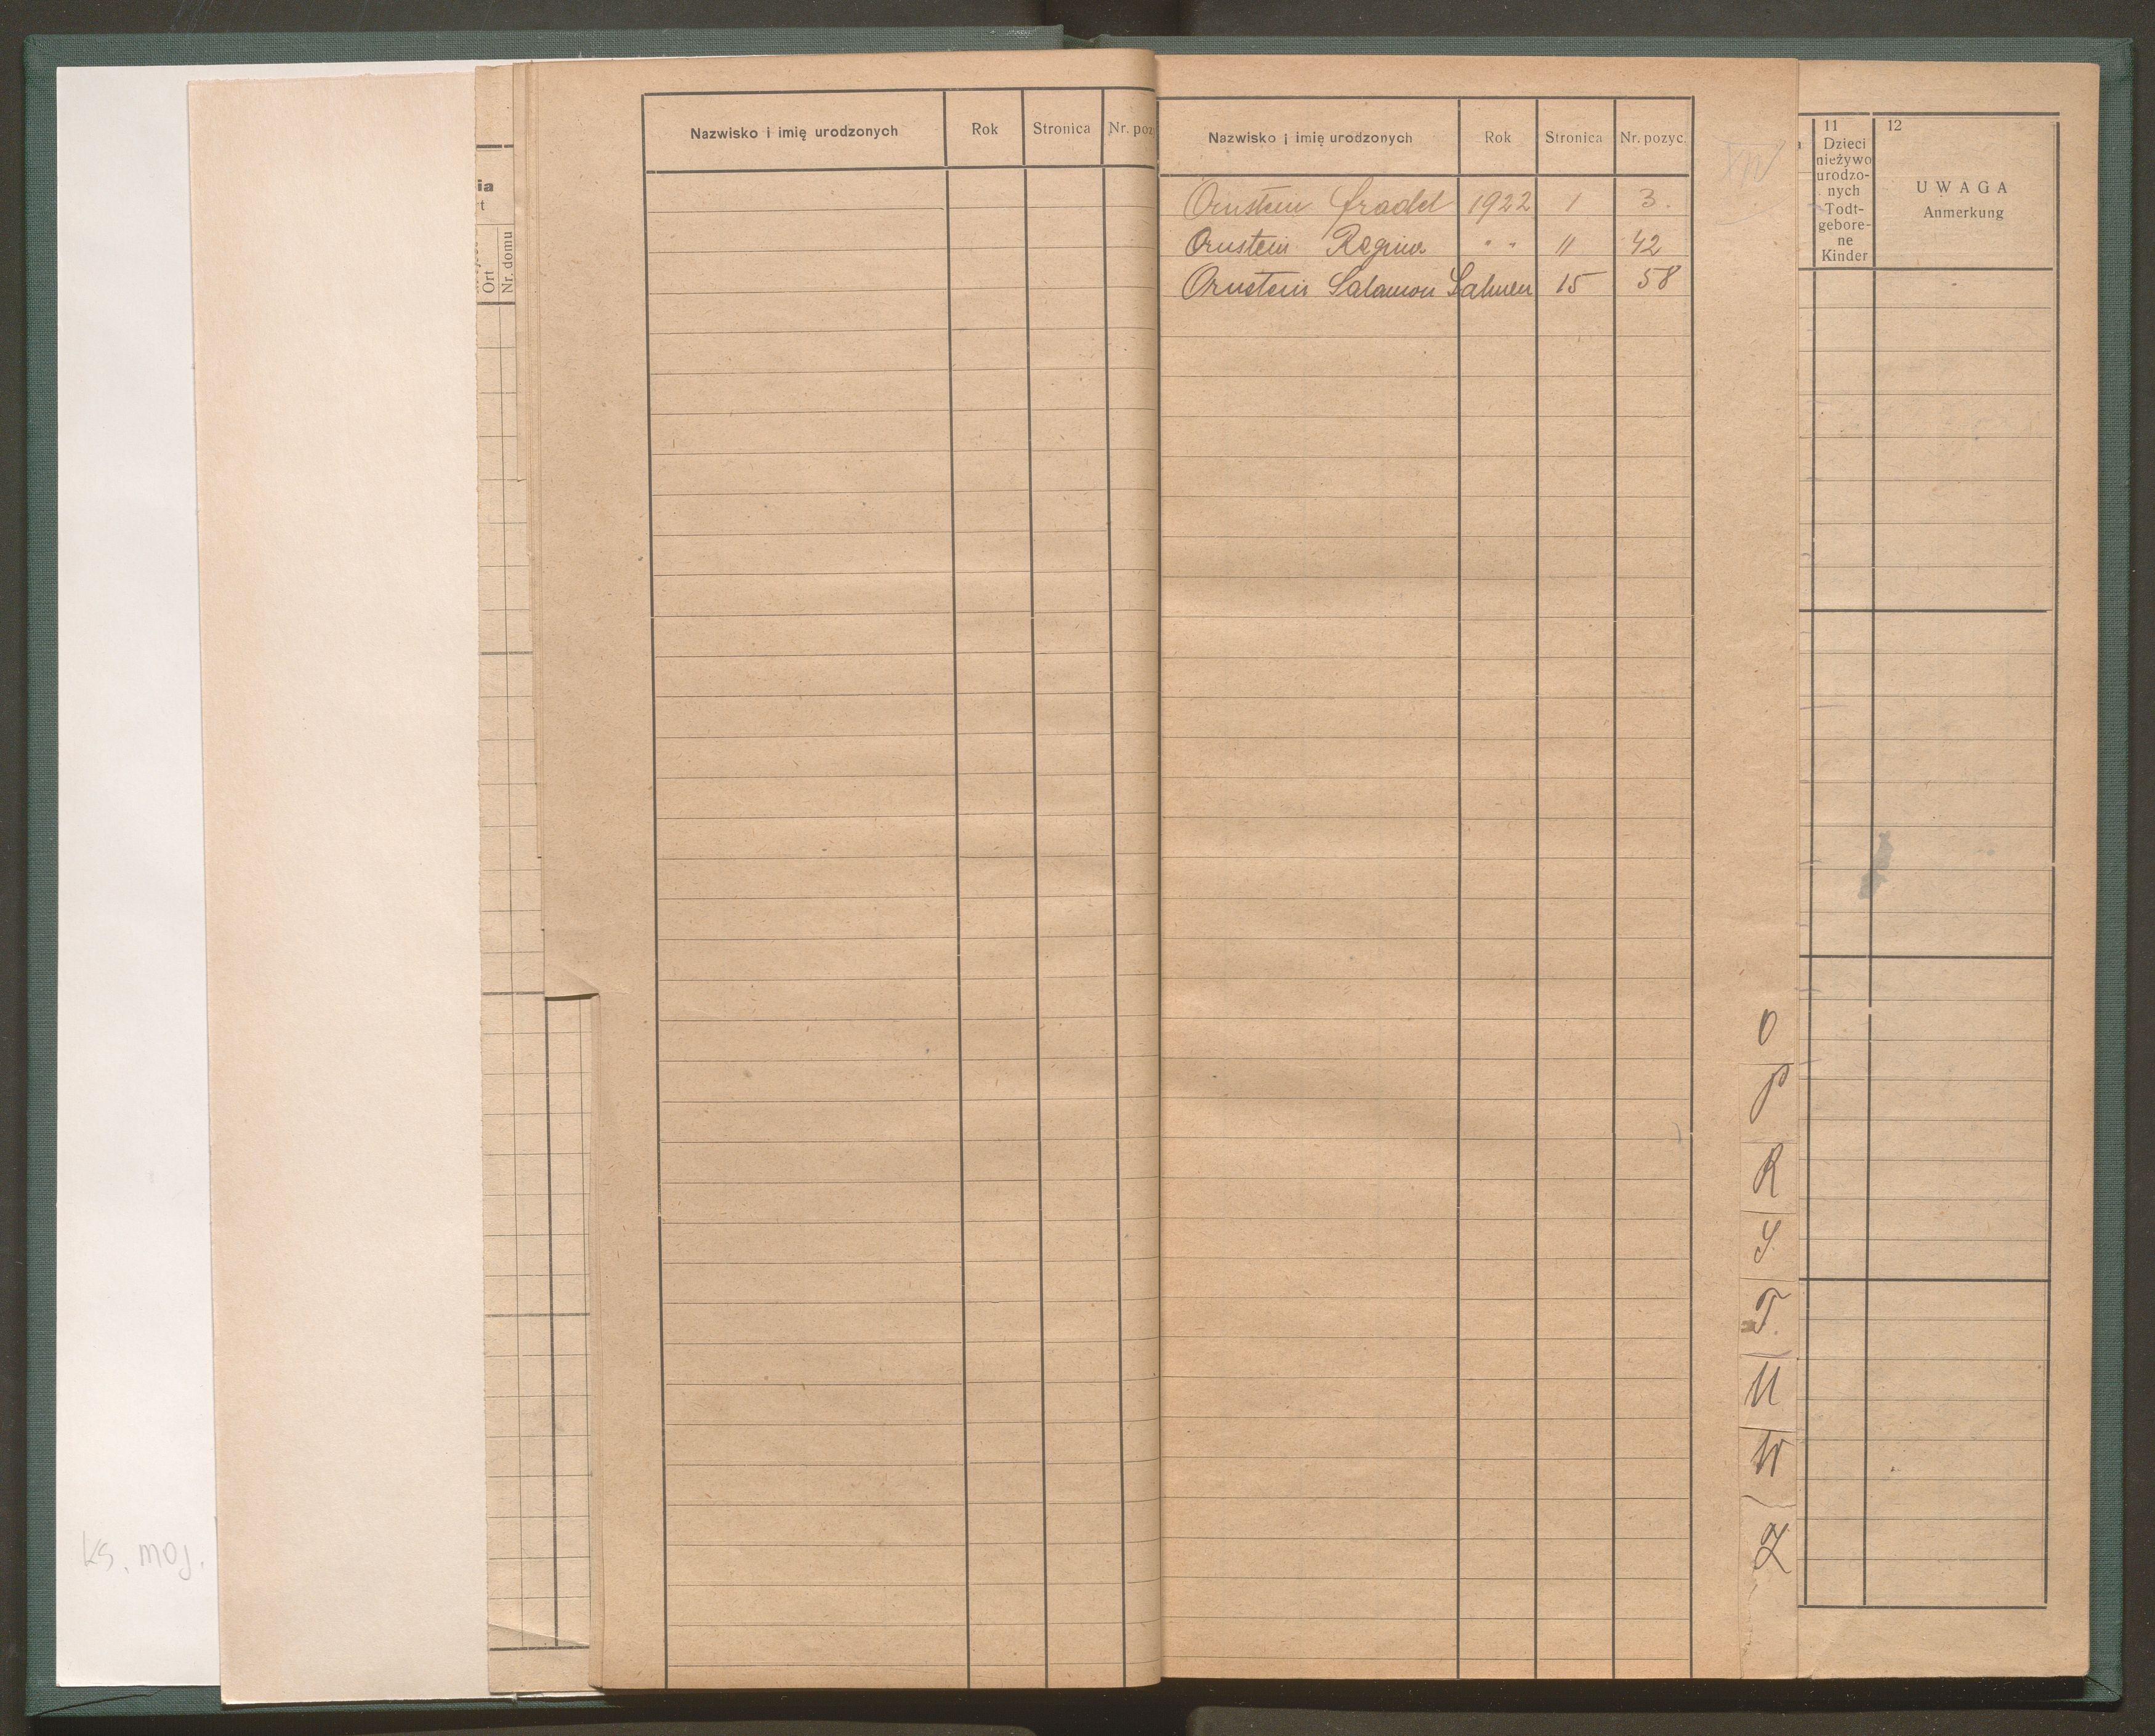 ks. moj.
ia
t
Ort
Nr. domu
Nazwisko i imię urodzonych Rok Stronica Nr. poz
Nazwisko i imię urodzonych Rok Stronica Nr. pozyc.
Ornstein Fradel 1922 1 3.
Ornstein Regina " " 11 42
Ornstein Salamon Salmen 15 58
O
P
R
S
T.
U
W
Z
11
Dzieci
nieżywo
urodzo-
nych
Todt-
gebore-
ne
Kinder
12
UWAGA
Anmerkung